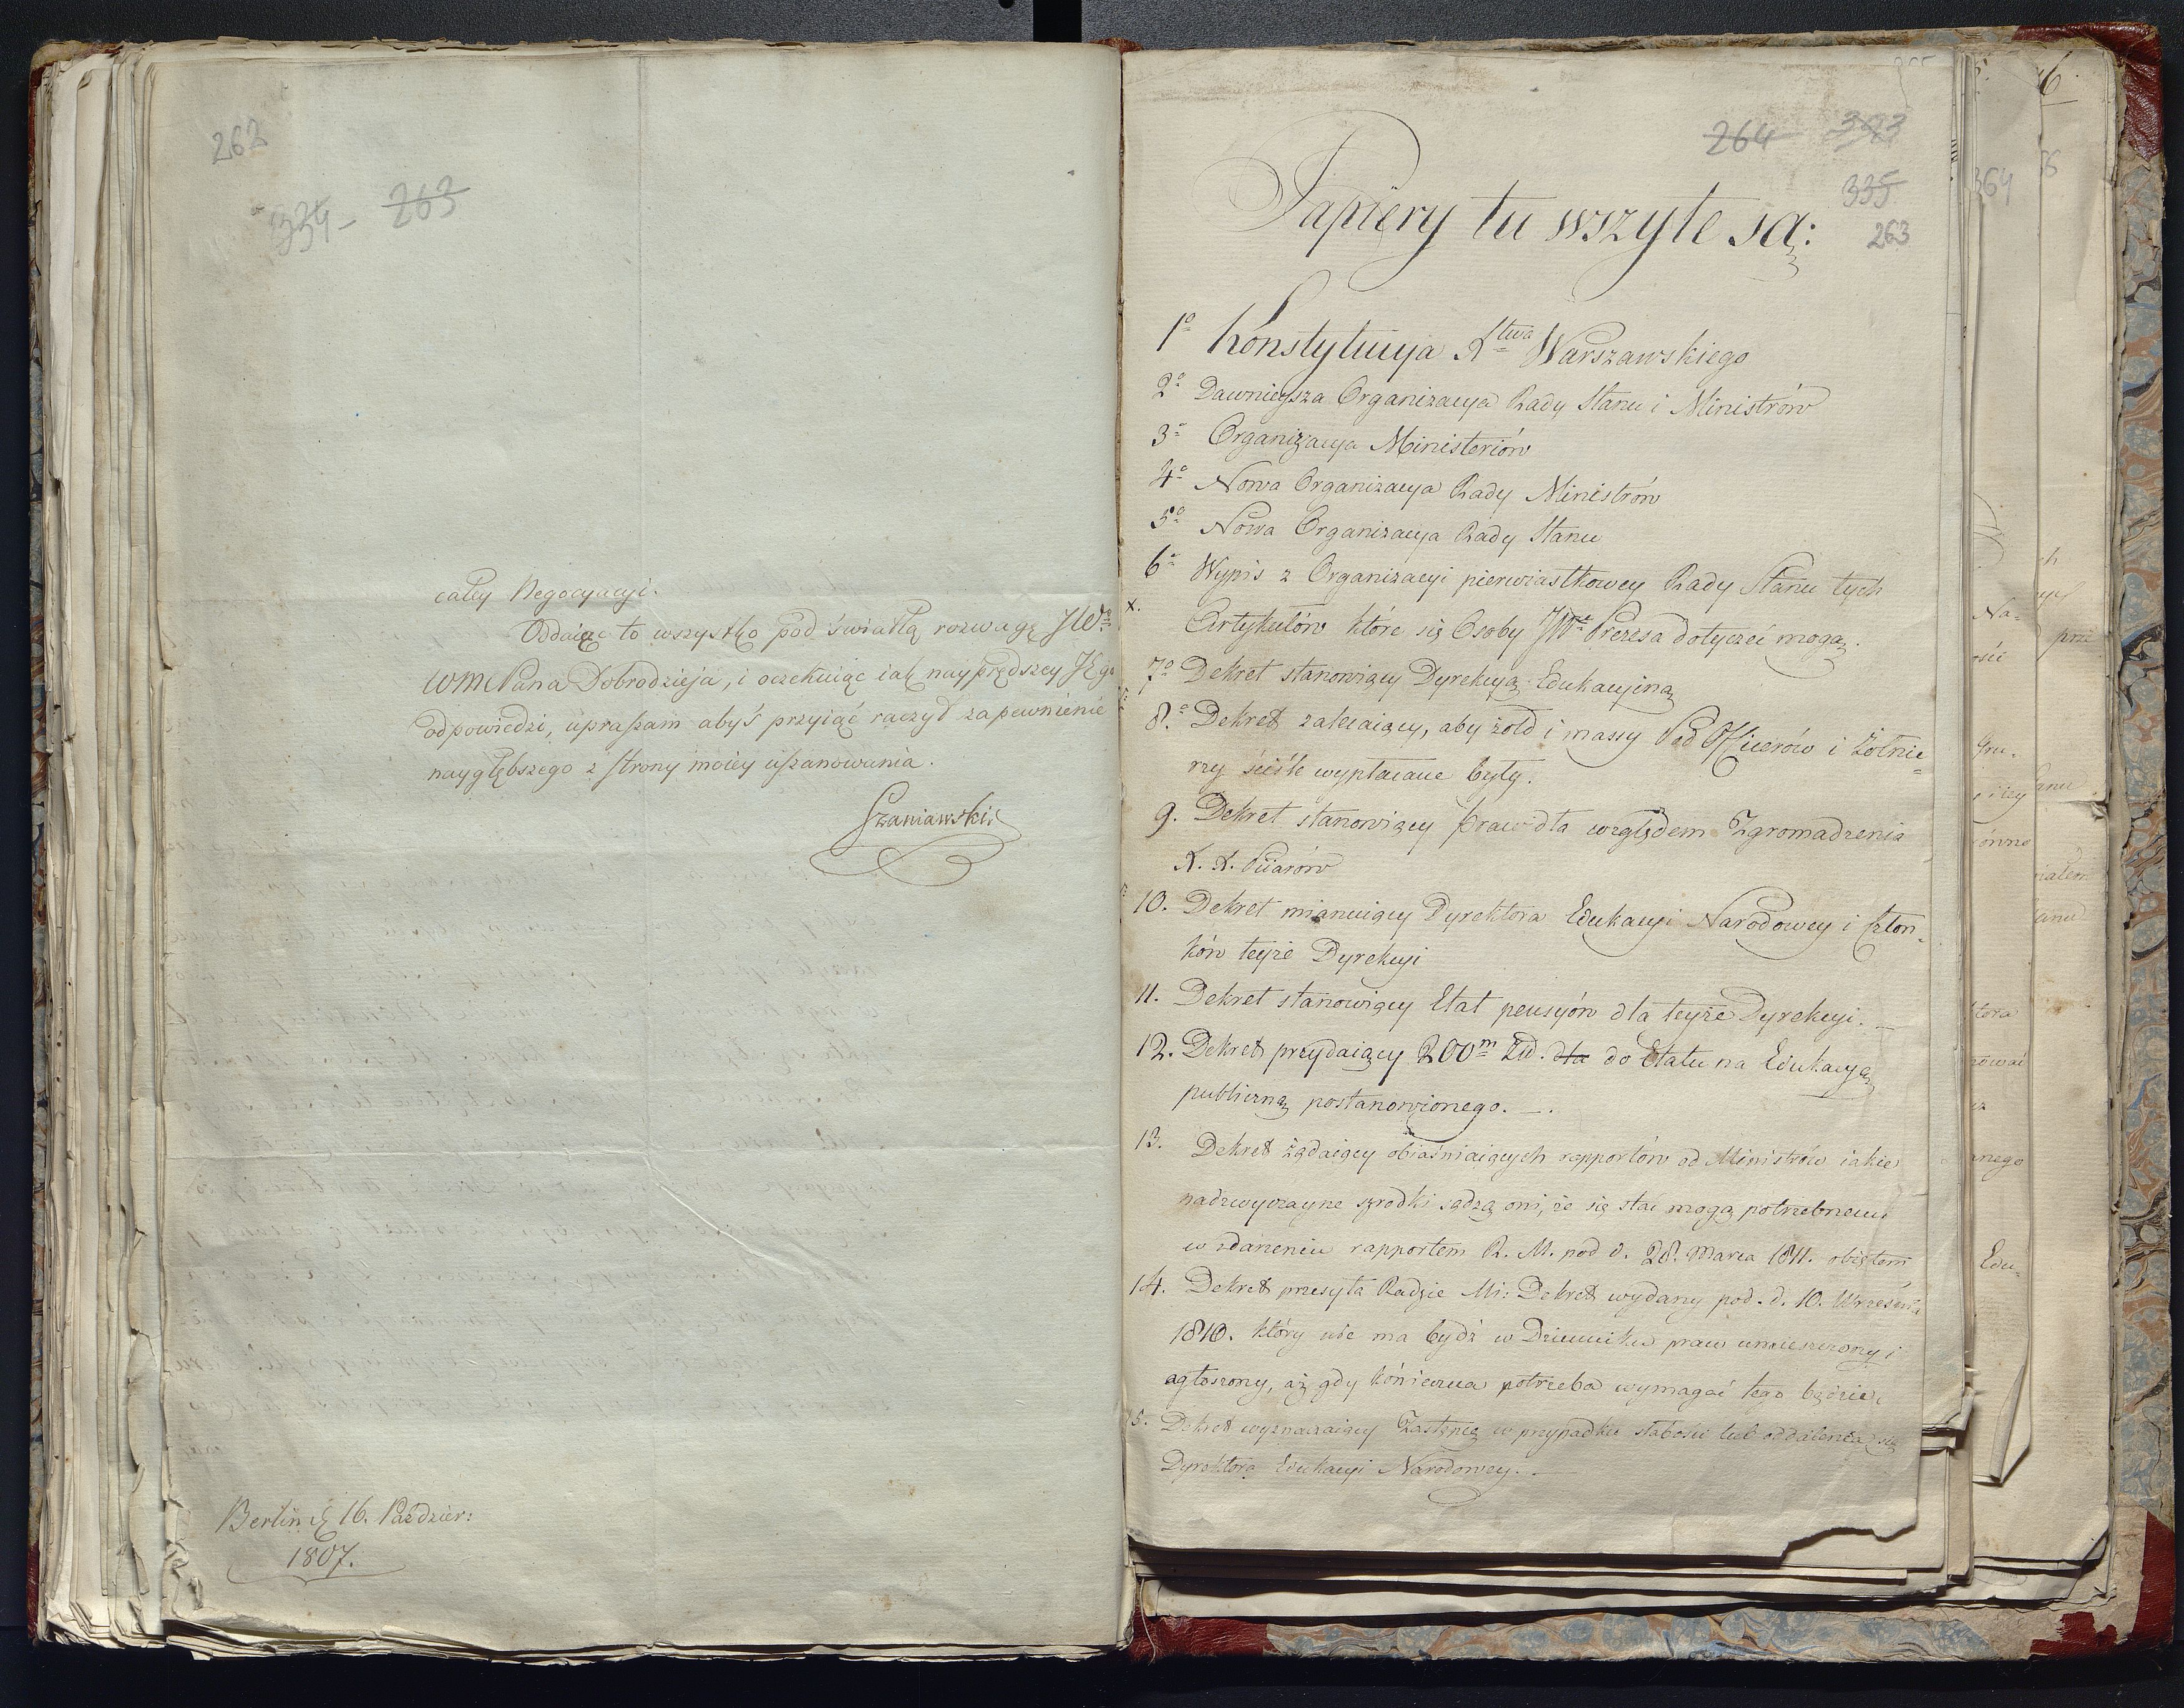 262
334- 263
całey Negocyacyi.
Oddaiąc to wszystko pod światłą rozwagę JWo
WMCPana Dobrodzieja, i oczekuiąc iak nayprędszey JEgo
odpowiedzi, upraszam abyś przyiąć raczył zapewnienie
naygłębszego z strony moiey uszanowania.
Szaniawski
Berlin d. 16. Paździer:
1807.
264
335
263
Papiery tu wszyte są:
1o Konstytucya Xtwa Warszawskiego
2o Dawnieysza Organizacya Rady Stanu i Ministrów
3o Organizacya Ministeriów
4o Nowa Organizacya Rady Ministrów
5o Nowa Organizacya Rady Stanu
6o Wypis z Organizacyi pierwiastkowey Rady Stanu tych
x.
Artykułów które się Osoby JW Prezesa dotyczeć mogą.
7o Dekret stanowiący Dyrekcyą Edukacyiną
8o Dekret zalecaiący, aby żołd i massy Pod Officerów i Żołnie=
rzy ściśle wypłacane były.
9. Dekret stanowiący prawidła względem Zgromadzenia
X. X. Piiarów
10. Dekret mianuiący Dyrektora Edukacyi Narodowey i Człon-
ków teyże Dyrekcyi
11. Dekret stanowiący Etat pensyów dla teyże Dyrekcyi. —
12. Dekret przydaiący 200m Złl. dla do Etatu na Edukacyą
publiczną postanowionego. —.
13. Dekret żądaiący obiaśniaiących rapportów od Ministrów iakie
nadzwyczayne szrodki sądzą oni, że się stać mogą potrzebnemi
w zdarzeniu rapportem R. M. pod d. 28. Marca 1811. obiętem
14. Dekret przesyła Radzie Mi: Dekret wydany pod. d. 10. Września
1810. który nie ma bydź w Dzienniku praw umieszczony i
ogłoszony, aż gdy konieczna potrzeba wymagać tego będzie.
15. Dekret wyznaczaiący Zastępcę w przypadku słabości lub oddalenia się
Dyrektora Edukacyi Narodowey. —